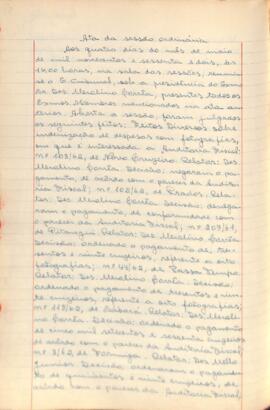 Ata da sessão ordinária
Aos quatro dias do mês de maio
de mil novecentos e sessenta e dois, às
14,00 horas, na sala das sessões, reuniu-
se o E. Tribunal, sob a presidência do Exmo
Sr. Des. Merolino Corrêa, presentes todos os
Exmos. Membros mencionados na ata an-
terior. Aberta a sessão, foram julgados
os seguintes feitos: Feitos Diversos sobre
indenização de despesas com fotografias,
em que é interessada a Auditoria Fiscal:
nº 103/62, de Novo Cruzeiro. Relator: Des.
Merolino Corrêa. Decisão: negaram o paga-
mento, de acôrdo com o parecer da Auditoria
Fiscal; nº 108/62, de Prados. Rela-
tor: Des. Merolino Corrêa. Decisão: denega-
ram o pagamento, de conformidade com
o parecer da Auditoria Fiscal; nº 207/61,
de Pitangui. Relator: Des. Merolino Corrêa.
Decisão: ordenado o pagamento de
sentos e vinte cruzeiros, referente a oito
fotografias; nº 44/62, de Passa Tempo.
Relator: Des. Merolino Corrêa. Decisão:
ordenado o pagamento de
cruzeiros, referente a oito fotografias;
nº 119/62, de Sabará. Relator: Des. Mero-
lino Corrêa. Decisão: ordenado o pagamento
de cinco mil e sessenta cruzeiros,
de acôrdo com o parecer da Auditoria Fiscal;
nº 3/62, de Formiga. Relator: Des. Mello
Junior. Decisão: ordenaram o pagamen-
to de quinhentos e vinte cruzeiros, de
acôrdo com o parecer da Auditoria Fiscal;